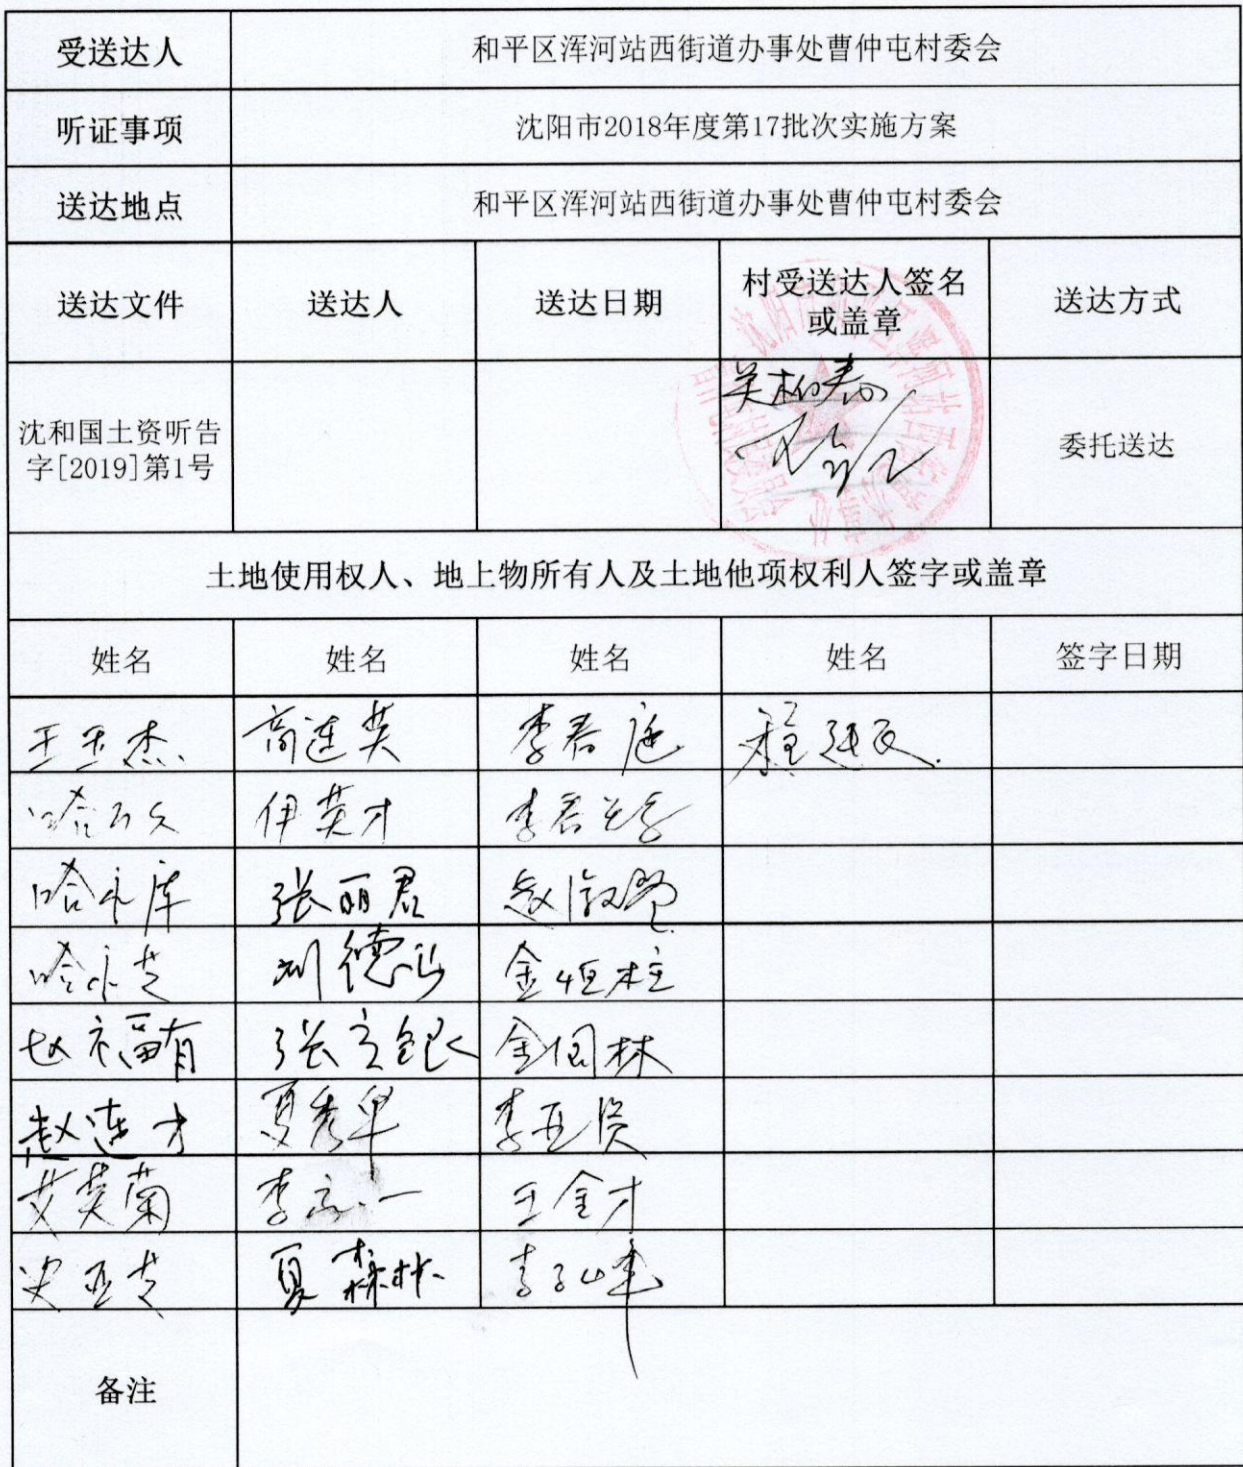 受送达人 和平区浑河站西街道办事处曹仲屯村委会
听证事项 沈阳市2018年度第17批次实施方案
送达地点 和平区浑河站西街道办事处曹仲屯村委会
送达文件 送达人 送达日期 村受送达人签名 送达方式
或盖章
沈和国土资听告
字[2019]第1号 委托送达
土地使用权人、地上物所有人及土地他项权利人签字或盖章
姓名 姓名 姓名 姓名 签字日期
王玉杰 高连英 李春庭 程廷文
伊英才
哈永库 张丽君
哈永芝 刘德 金恒柱
赵福有 张立银 金国林
赵连才 夏秀华 李亚贤
艾英菊 王金才
史亚芝 夏森林
备注